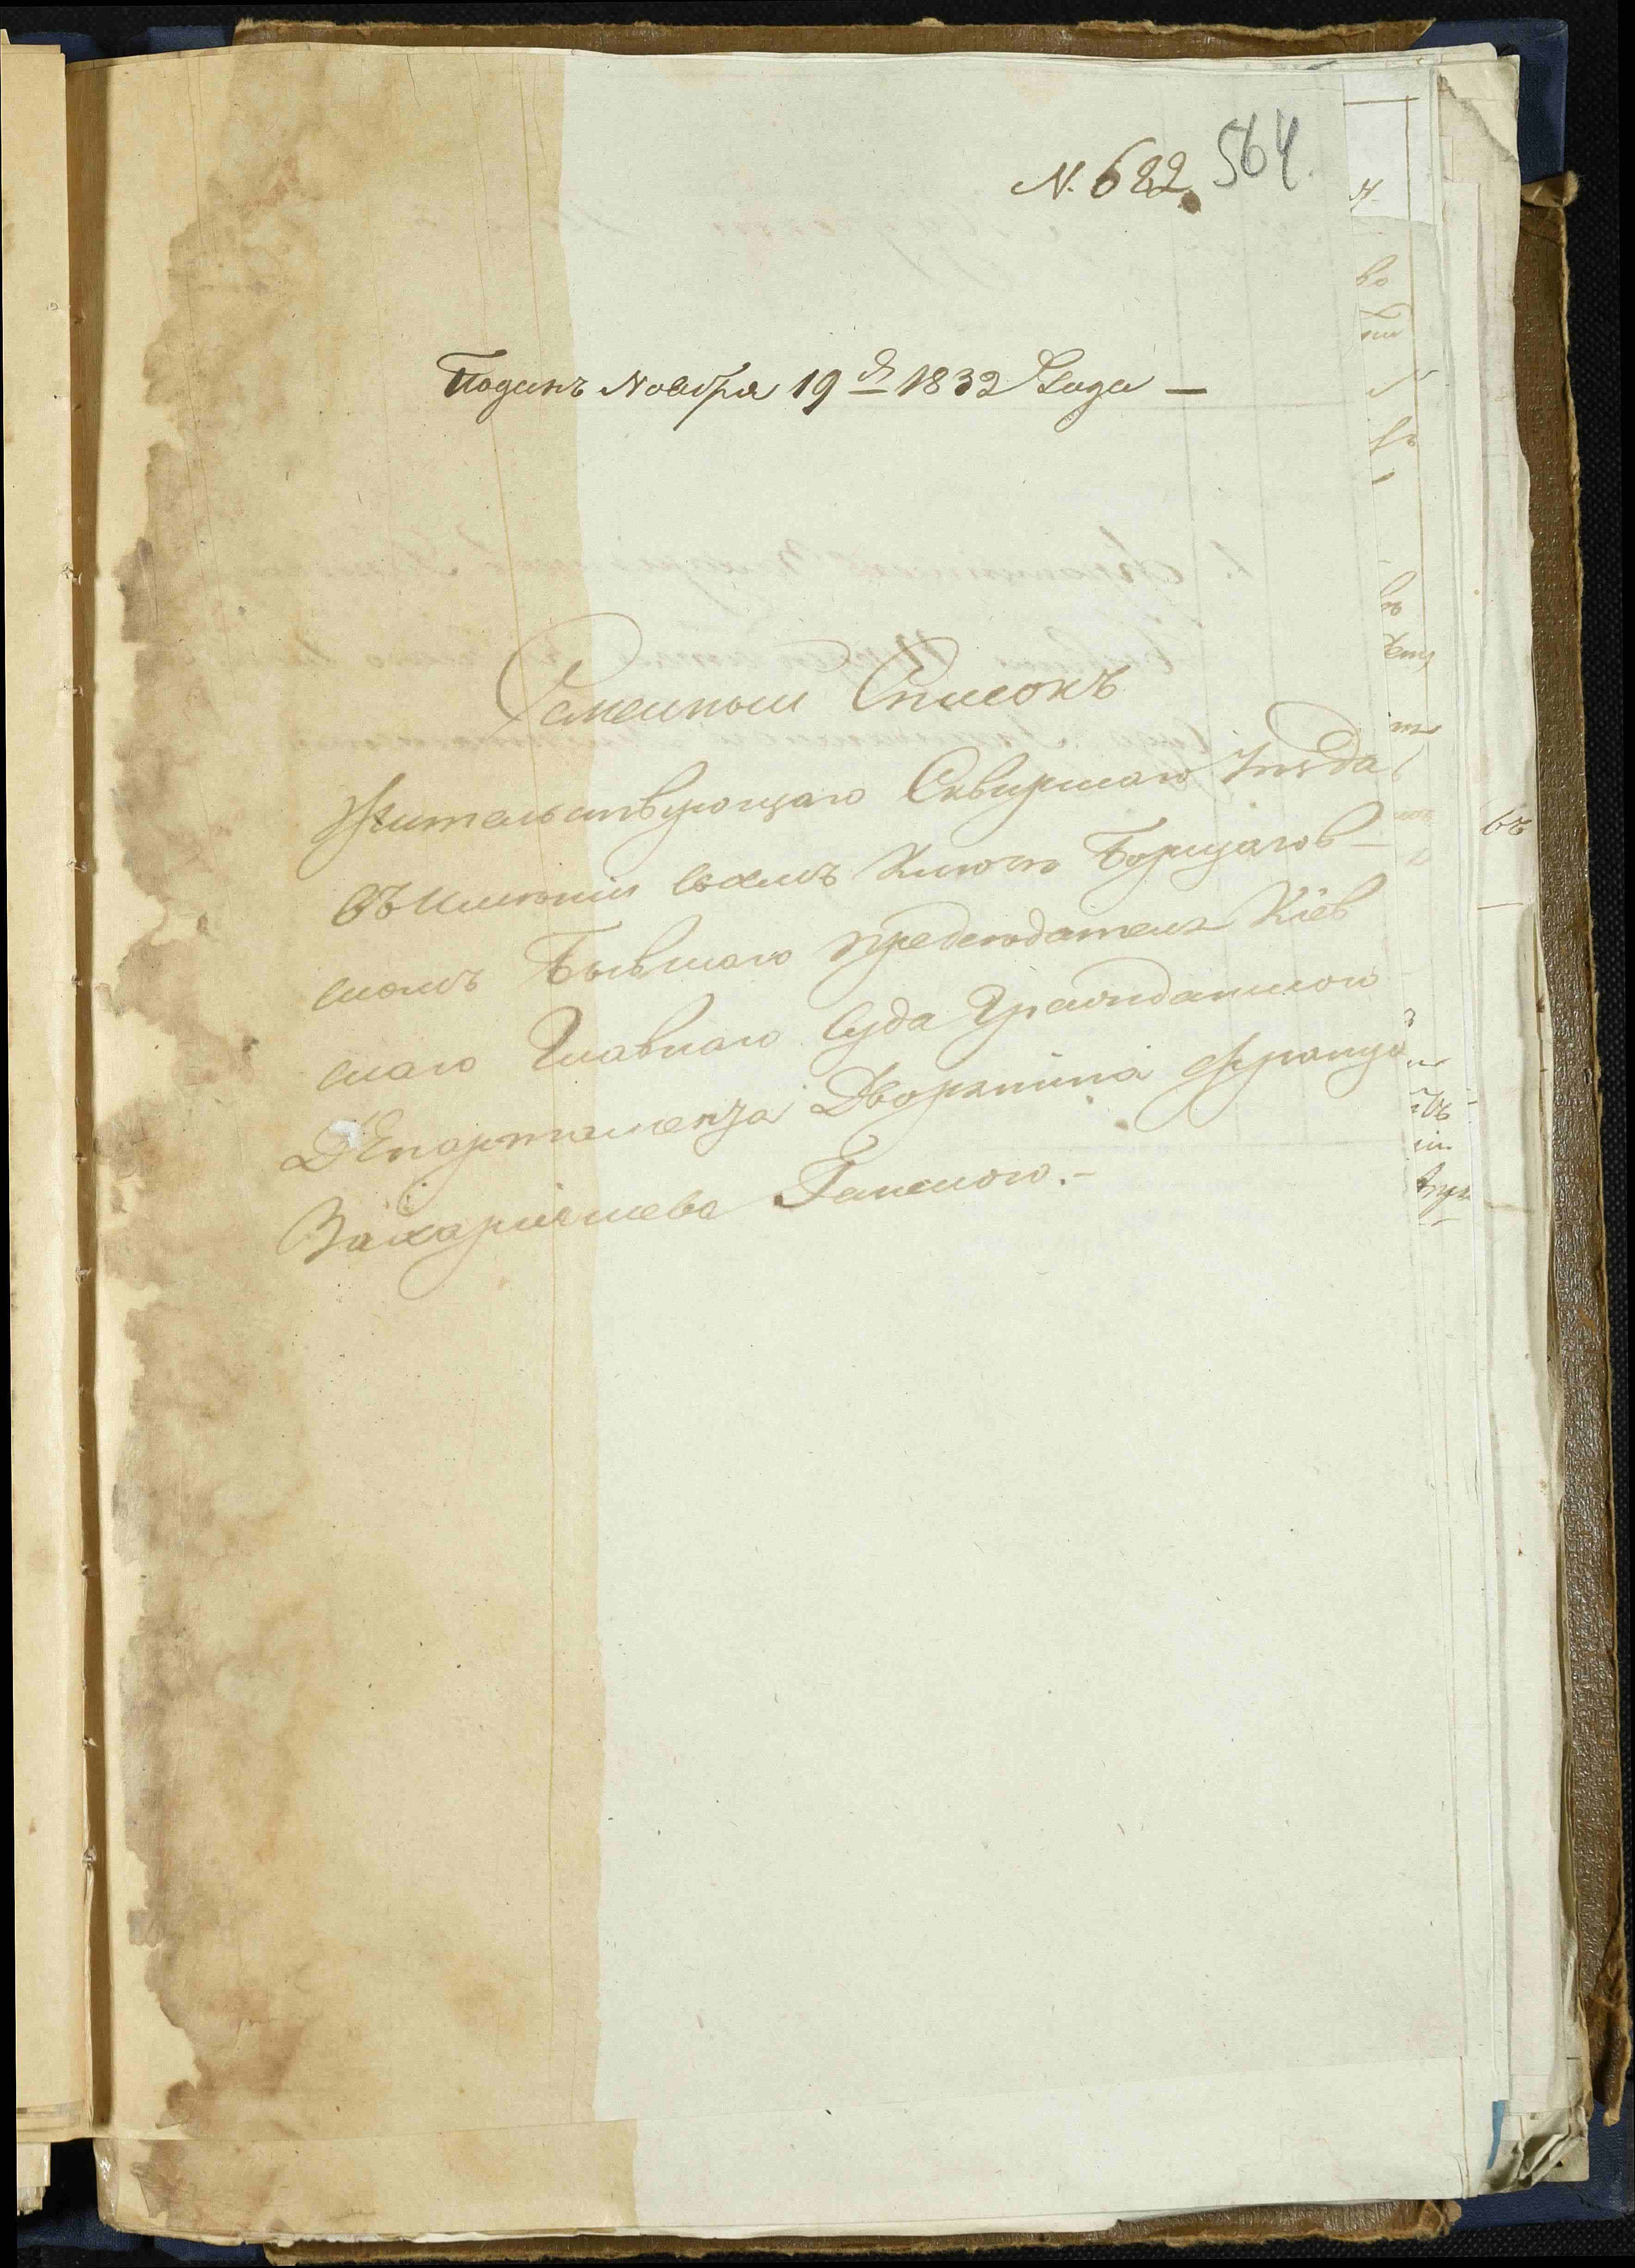 N. 682. 564.
Поданъ Ноября 19 д 1832 Года —
Семейный Списокъ
Жительствующаго Сквирскаго Уезда
Въ имении своемъ Ключе Борщагов-
скомъ Бывшаго председателя Кіев
скаго Главнаго Суда Гражданского
Департамента Дворянина Франца
Захаріяшева Ганского.-